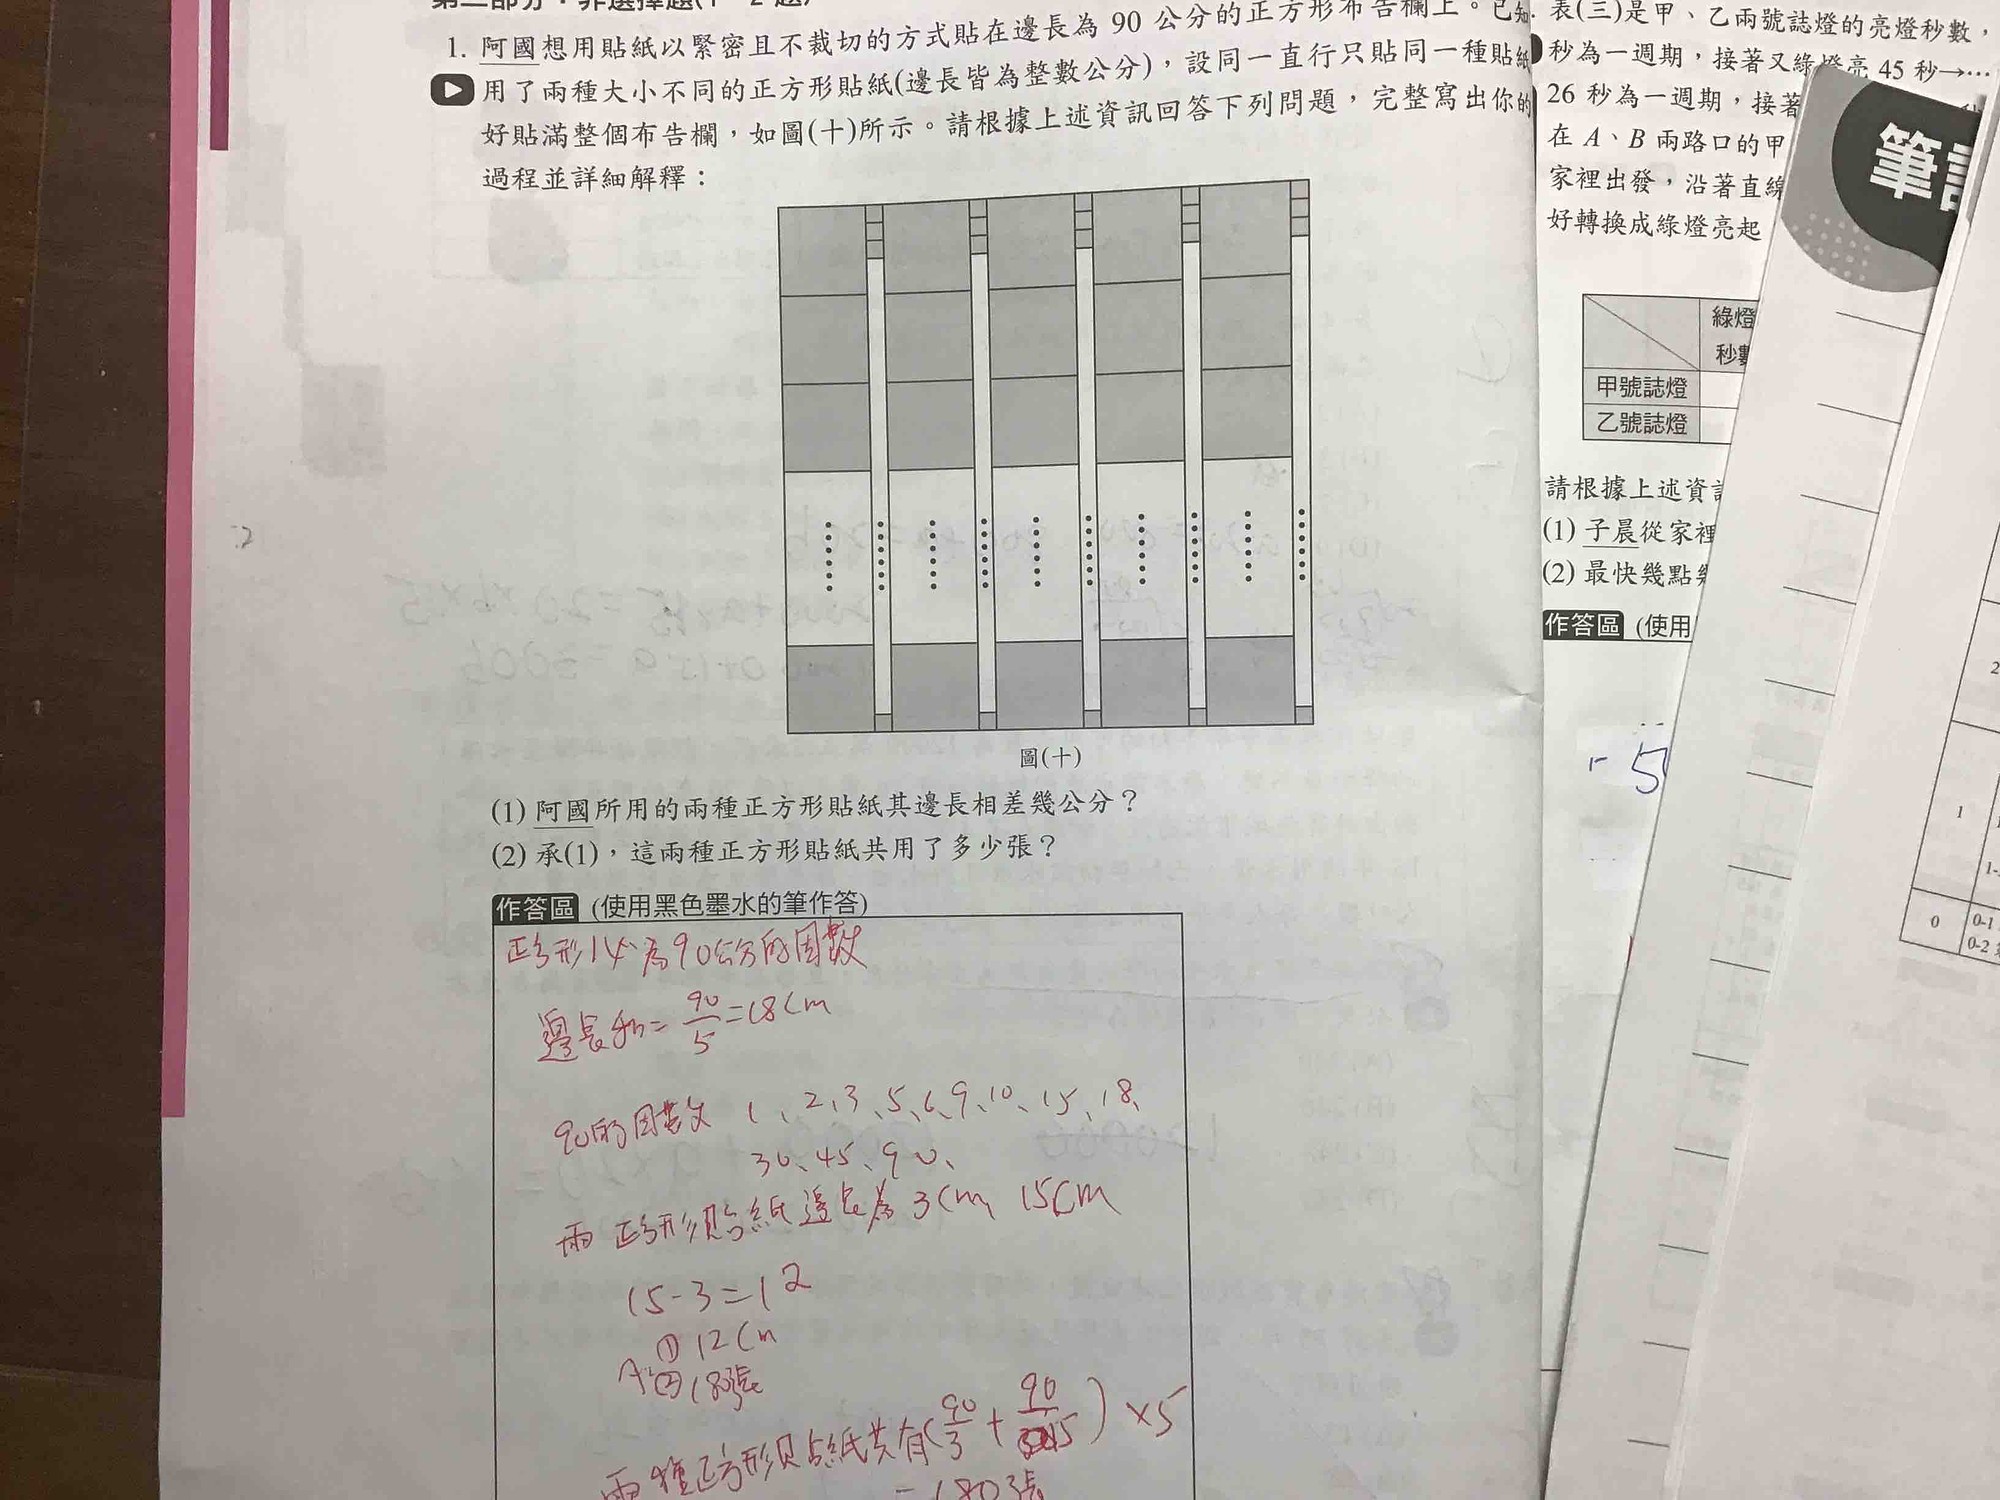 第二部分：非選擇題(1～2題)
1. 阿國想用貼紙以緊密且不裁切的方式貼在邊長為 90 公分的正方形布告欄上。已知
用了兩種大小不同的正方形貼紙(邊長皆為整數公分)，設同一直行只貼同一種貼紙
好貼滿整個布告欄，如圖(十)所示。請根據上述資訊回答下列問題，完整寫出你的
過程並詳細解釋：
圖(十)
(1) 阿國所用的兩種正方形貼紙其邊長相差幾公分？
(2) 承(1)，這兩種正方形貼紙共用了多少張？
作答區 (使用黑色墨水的筆作答)
正方形 必為90公分的因數
邊長和=90/5=18cm
90的因數 1、2、3、5、6、9、10、15、18、
30、45、90、
兩正方形貼紙邊長為3cm 15cm
15-3=12
① 12cm
A:② 180張
兩種正方形貼紙共有(90/3+90/15)×5
=180張
表(三)是甲、乙兩號誌燈的亮燈秒數，
秒為一週期，接著又綠燈亮 45 秒→…
26 秒為一週期，接著
在 A、B 兩路口的甲
家裡出發，沿著直線
好轉換成綠燈亮起
綠燈
秒數
甲號誌燈
乙號誌燈
請根據上述資訊
(1) 子晨從家裡
(2) 最快幾點幾
作答區 (使用
5
筆
2
1
1-
0
0-1
0-2